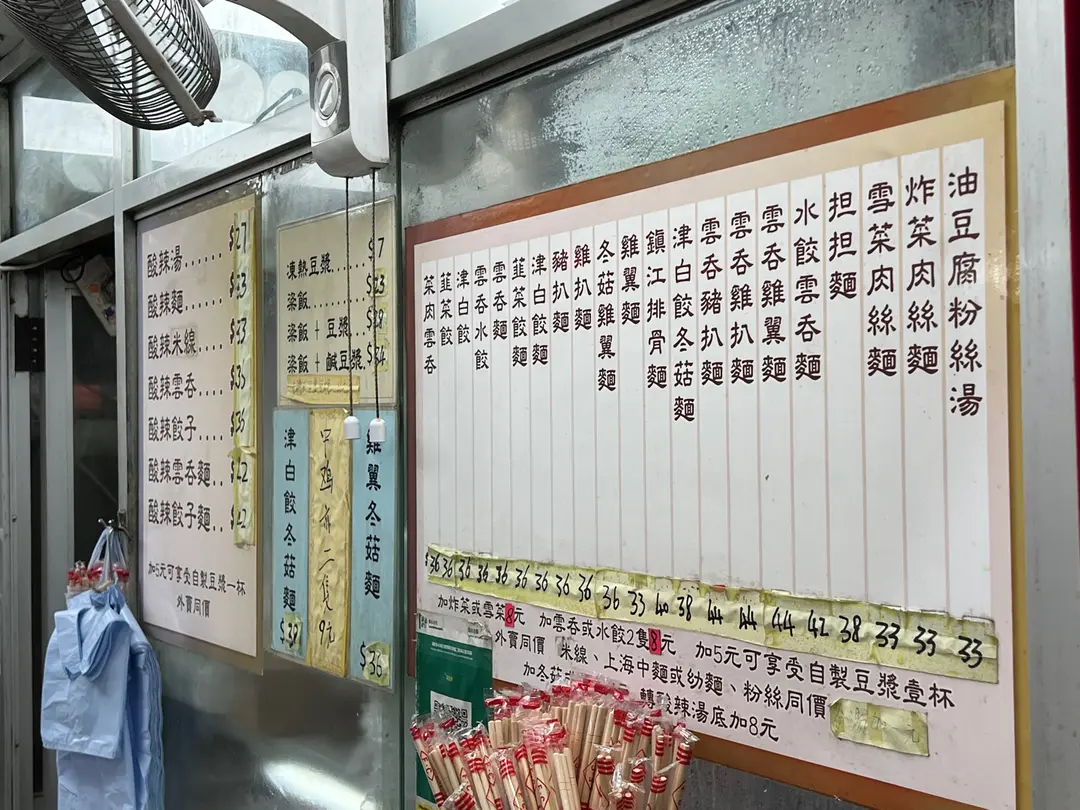 酸辣湯.......$27
酸辣麵.......$33
酸辣米線.....$33
酸辣雲吞.....$35
酸辣餃子.....$36
酸辣雲吞麵..$42
酸辣餃子麵..$42
加5元可享受自製豆漿一杯
外賣同價
凍熱豆漿......$7
粢飯.......$23
粢飯 + 豆漿..$28
粢飯 + 鹹豆漿.$34
雞翼冬菇麵 $36
二隻9元
津白餃冬菇麵 $38
油豆腐粉絲湯
炸菜肉絲麵
雪菜肉絲麵
担担麵
水餃雲吞麵
雲吞雞翼麵
雲吞雞扒麵
雲吞豬扒麵
津白餃冬菇麵
鎮江排骨麵
雞翼麵
冬菇雞翼麵
雞扒麵
豬扒麵
津白餃麵
韮菜餃麵
雲吞麵
雲吞水餃
津白餃
韮菜餃
菜肉雲吞
$36 36 36 36 36 36 36 36 36 36 33 40 38 44 44 44 42 38 33 33 33
加炸菜或雪菜8元 加雲吞或水餃2隻8元 加5元可享受自製豆漿壹杯
外賣同價 米線、上海中麵或幼麵、粉絲同價
加冬菇 轉酸辣湯底加8元